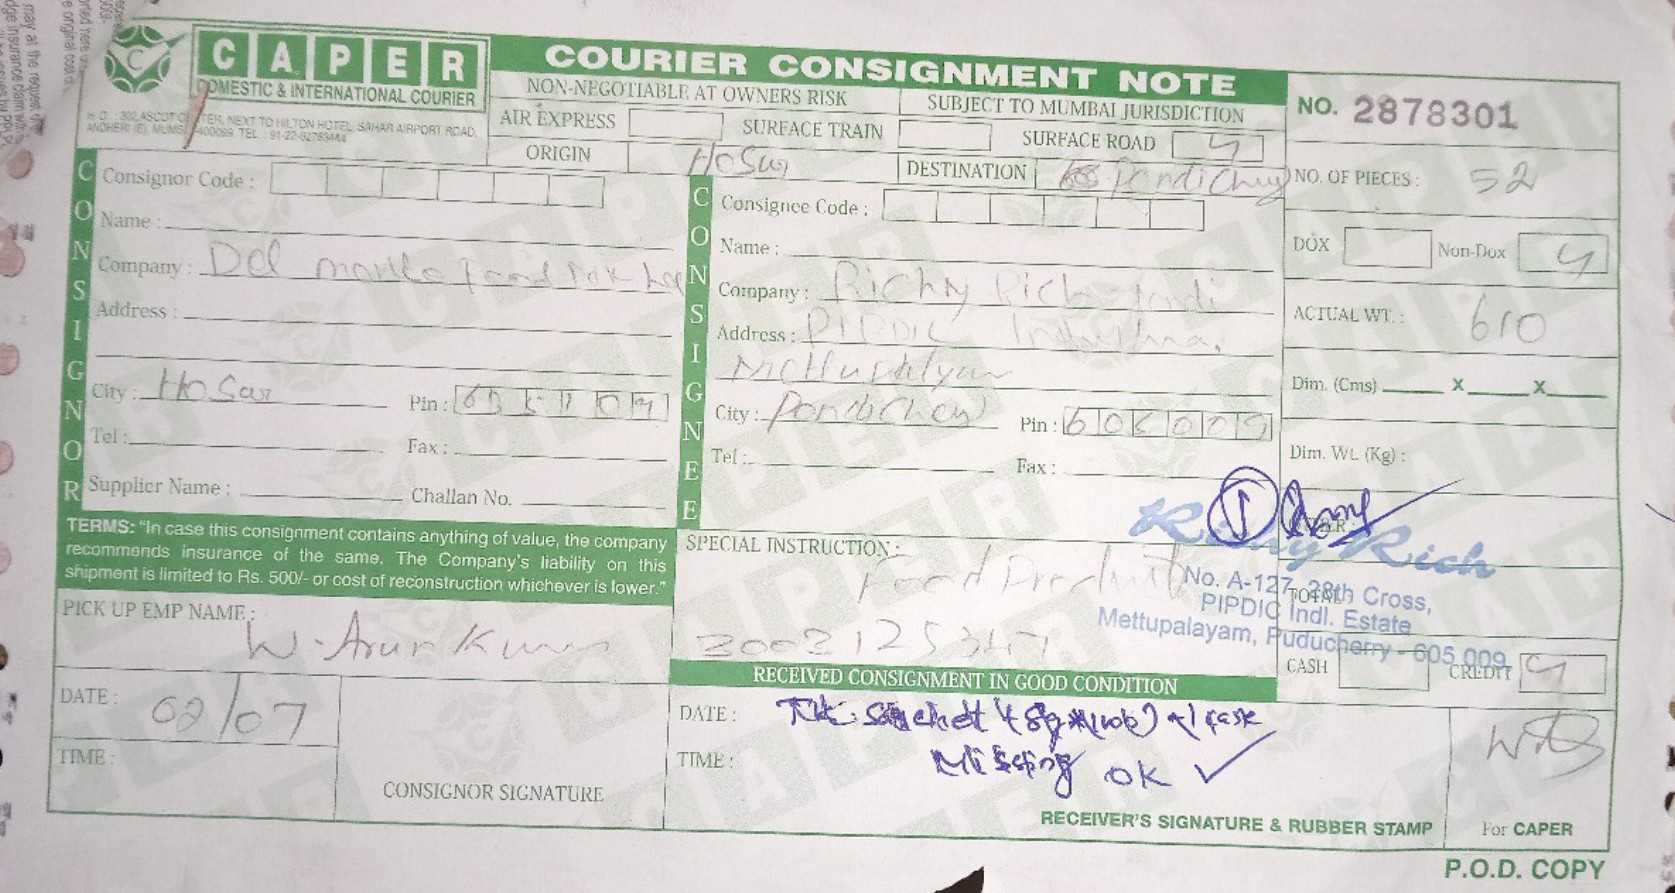 CAPER
DOMESTIC & INTERNATIONAL COURIER
H.O. : 302, ASCOT CENTER, NEXT TO HILTON HOTEL, SAHAR AIRPORT ROAD,
ANDHERI (E), MUMBAI 400099. TEL. : 91-22-
COURIER CONSIGNMENT NOTE
NON-NEGOTIABLE AT OWNERS RISK
SUBJECT TO MUMBAI JURISDICTION
NO. 2878301
AIR EXPRESS
SURFACE TRAIN
SURFACE ROAD
ORIGIN Hosur
DESTINATION Pondichery
NO. OF PIECES : 52
CONSIGNOR
Consignor Code :
Name :
Company : Del monte
Address :
City : Hosur
Pin :
Tel :
Fax :
Supplier Name :
Challan No.
CONSIGNEE
Consignee Code :
Name :
Company : Richy Rich
Address : PIPDIC
Mettupalyam
City : Pondichery
Pin :
Tel :
Fax :
DOX
Non-Dox
ACTUAL WT. : 610
Dim. (Cms) X X
Dim. Wt. (Kg) :
TERMS: "In case this consignment contains anything of value, the company
recommends insurance of the same. The Company's liability on this
shipment is limited to Rs. 500/- or cost of reconstruction whichever is lower."
SPECIAL INSTRUCTION :
Food Product
2002125347
Richy Rich
No. A-127, 28th Cross,
PIPDIC Indl. Estate
Mettupalayam, Puducherry - 605 009
TOTAL
CASH
CREDIT
PICK UP EMP NAME :
W. Arun Kumar
DATE : 02/07
TIME :
CONSIGNOR SIGNATURE
RECEIVED CONSIGNMENT IN GOOD CONDITION
DATE :
TIME : Missing OK
RECEIVER'S SIGNATURE & RUBBER STAMP
For CAPER
P.O.D. COPY